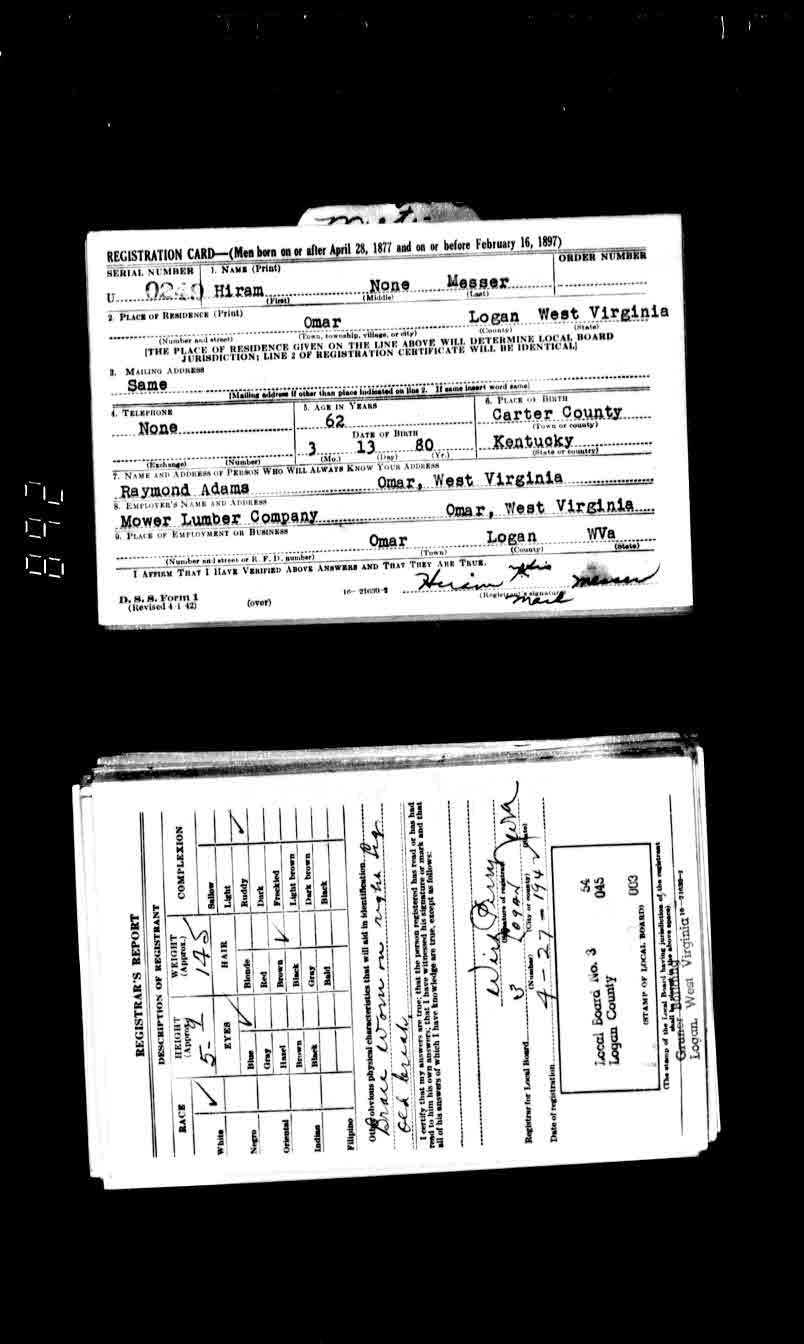 REGISTRATION CARD—(Men born on or after April 28, 1877 and on or before February 16, 1897)
SERIAL NUMBER 1. NAME (Print) ORDER NUMBER
U Hiram None Messer
(First) (Middle) (Last)
2. PLACE OF RESIDENCE (Print)
Omar Logan West Virginia
(Number and street) (Town, township, village, or city) (County) (State)
[THE PLACE OF RESIDENCE GIVEN ON THE LINE ABOVE WILL DETERMINE LOCAL BOARD
JURISDICTION; LINE 2 OF REGISTRATION CERTIFICATE WILL BE IDENTICAL]
3. MAILING ADDRESS
Same
[Mailing address if other than place indicated on line 2. If same insert word same]
4. TELEPHONE 5. AGE IN YEARS 6. PLACE OF BIRTH
None 62 Carter County
(Town or county)
DATE OF BIRTH
3 13 80 Kentucky
(Exchange) (Number) (Mo.) (Day) (Yr.) (State or country)
7. NAME AND ADDRESS OF PERSON WHO WILL ALWAYS KNOW YOUR ADDRESS
Raymond Adams Omar, West Virginia
8. EMPLOYER'S NAME AND ADDRESS
Mower Lumber Company Omar, West Virginia
9. PLACE OF EMPLOYMENT OR BUSINESS
Omar Logan WVa
(Number and street or R. F. D. number) (Town) (County) (State)
I AFFIRM THAT I HAVE VERIFIED ABOVE ANSWERS AND THAT THEY ARE TRUE.
Hiram His Messer
D. S. S. Form 1 16—21630-2 (Registrant's signature)
(Revised 4-1-42) (over) Mark
892
REGISTRAR'S REPORT
DESCRIPTION OF REGISTRANT
RACE HEIGHT (Approx.) WEIGHT (Approx.) COMPLEXION
5-1 145
EYES HAIR
White ✓ Blue ✓ Blonde Sallow
Light
Negro Gray Red Ruddy ✓
Hazel Brown ✓ Dark
Oriental Brown Black Freckled
Indian Black Gray Light brown
Bald Dark brown
Filipino Black
Other obvious physical characteristics that will aid in identification
Brace worn on right leg
old break
I certify that my answers are true; that the person registered has read or has had
read to him his own answers; that I have witnessed his signature or mark and that
all of his answers of which I have knowledge are true, except as follows:
(Signature of registrar)
Registrar for Local Board 3 Logan WVa
(Number) (City or county) (State)
Date of registration 4-27-1942
Local Board No. 3 54
Logan County 045
003
(STAMP OF LOCAL BOARD)
(The stamp of the Local Board having jurisdiction of the registrant
shall be placed in the above space)
16—21630-2
Gruner Building
Logan, West Virginia